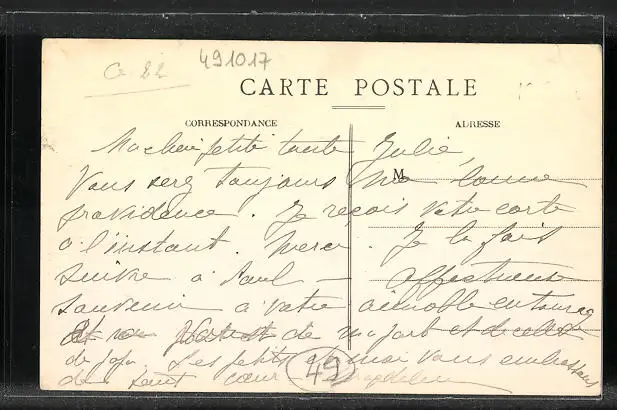 C 22
491017
CARTE POSTALE
CORRESPONDANCE
ADRESSE
M
Ma chère petite tante Julie,
Vous serez toujours ma bonne
providence. Je reçois votre carte
à l'instant. Merci. Je la fais
suivre à Paul — affectueux
souvenir à votre aimable entourage
de ma part et de celle
de papa. Les petits et moi vous embrassons
de tout cœur
49